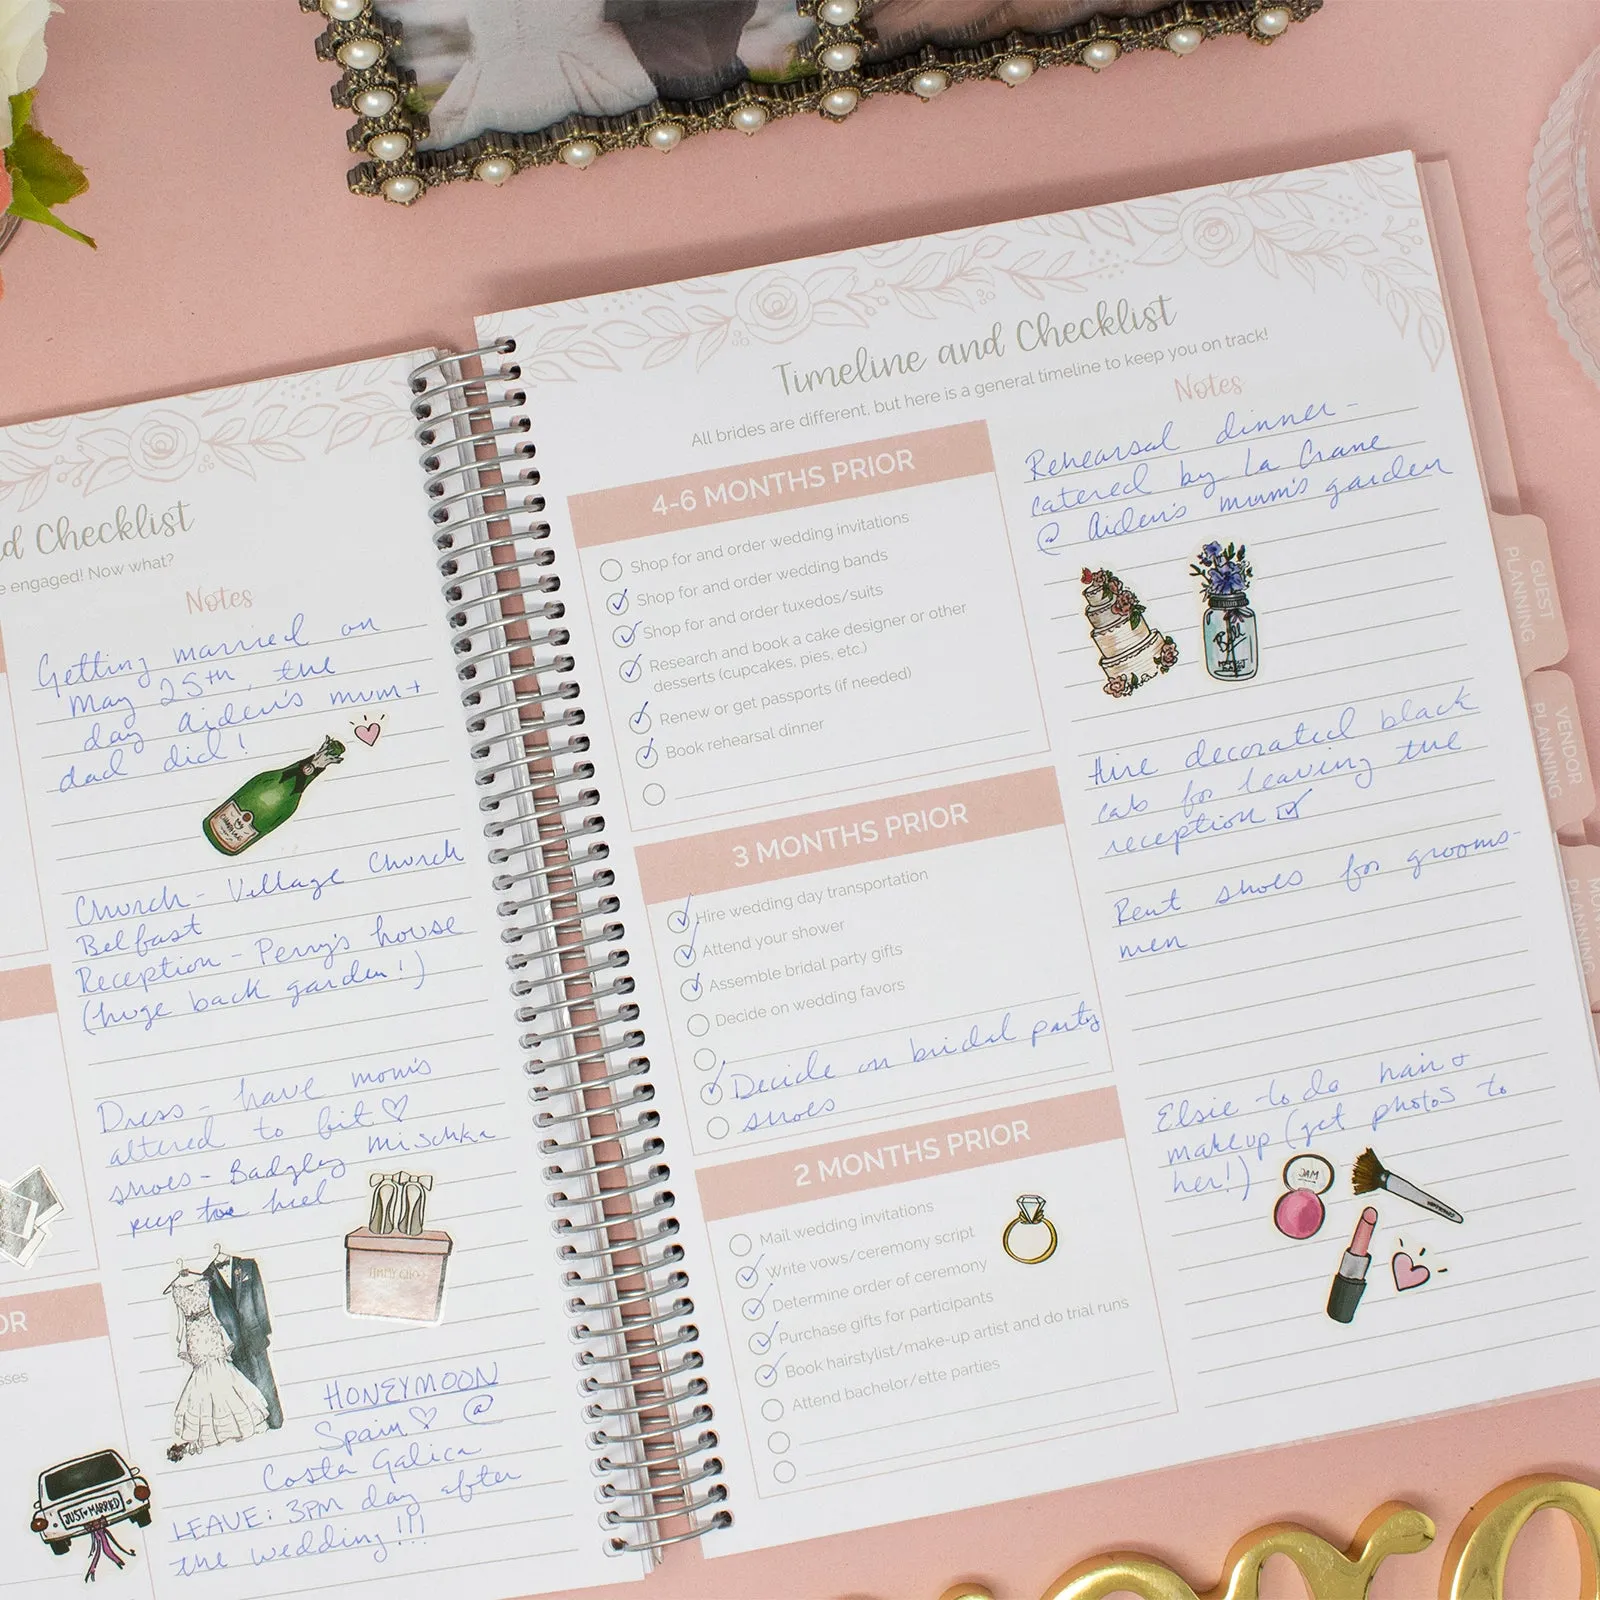 d Checklist
e engaged! Now what?
Notes
Getting married on
May 25th, the
day Aiden's mum +
dad did!
Church - Village Church
Belfast
Reception - Perry's house
(huge back garden!)
Dress - have mom's
altered to fit
shoes - Badgley Mischka
peep toe heel
HONEYMOON
Spain @
Costa Galica
LEAVE: 3PM day after
the wedding!!!
OR
sses
JUST MARRIED
JIMMY CHOO
Timeline and Checklist
All brides are different, but here is a general timeline to keep you on track!
4-6 MONTHS PRIOR
Shop for and order wedding invitations
Shop for and order wedding bands
Shop for and order tuxedos/suits
Research and book a cake designer or other
desserts (cupcakes, pies, etc.)
Renew or get passports (if needed)
Book rehearsal dinner
3 MONTHS PRIOR
Hire wedding day transportation
Attend your shower
Assemble bridal party gifts
Decide on wedding favors
Decide on bridal party
shoes
2 MONTHS PRIOR
Mail wedding invitations
Write vows/ceremony script
Determine order of ceremony
Purchase gifts for participants
Book hairstylist/make-up artist and do trial runs
Attend bachelor/ette parties
Notes
Rehearsal dinner -
catered by La Crane
@ Aiden's mum's garden
Ball
Hire decorated black
cab for leaving the
reception
Rent shoes for grooms-
men
Elsie to do hair +
makeup (get photos to
her!)
JAM
GUEST
PLANNING
VENDOR
PLANNING
PLANNING